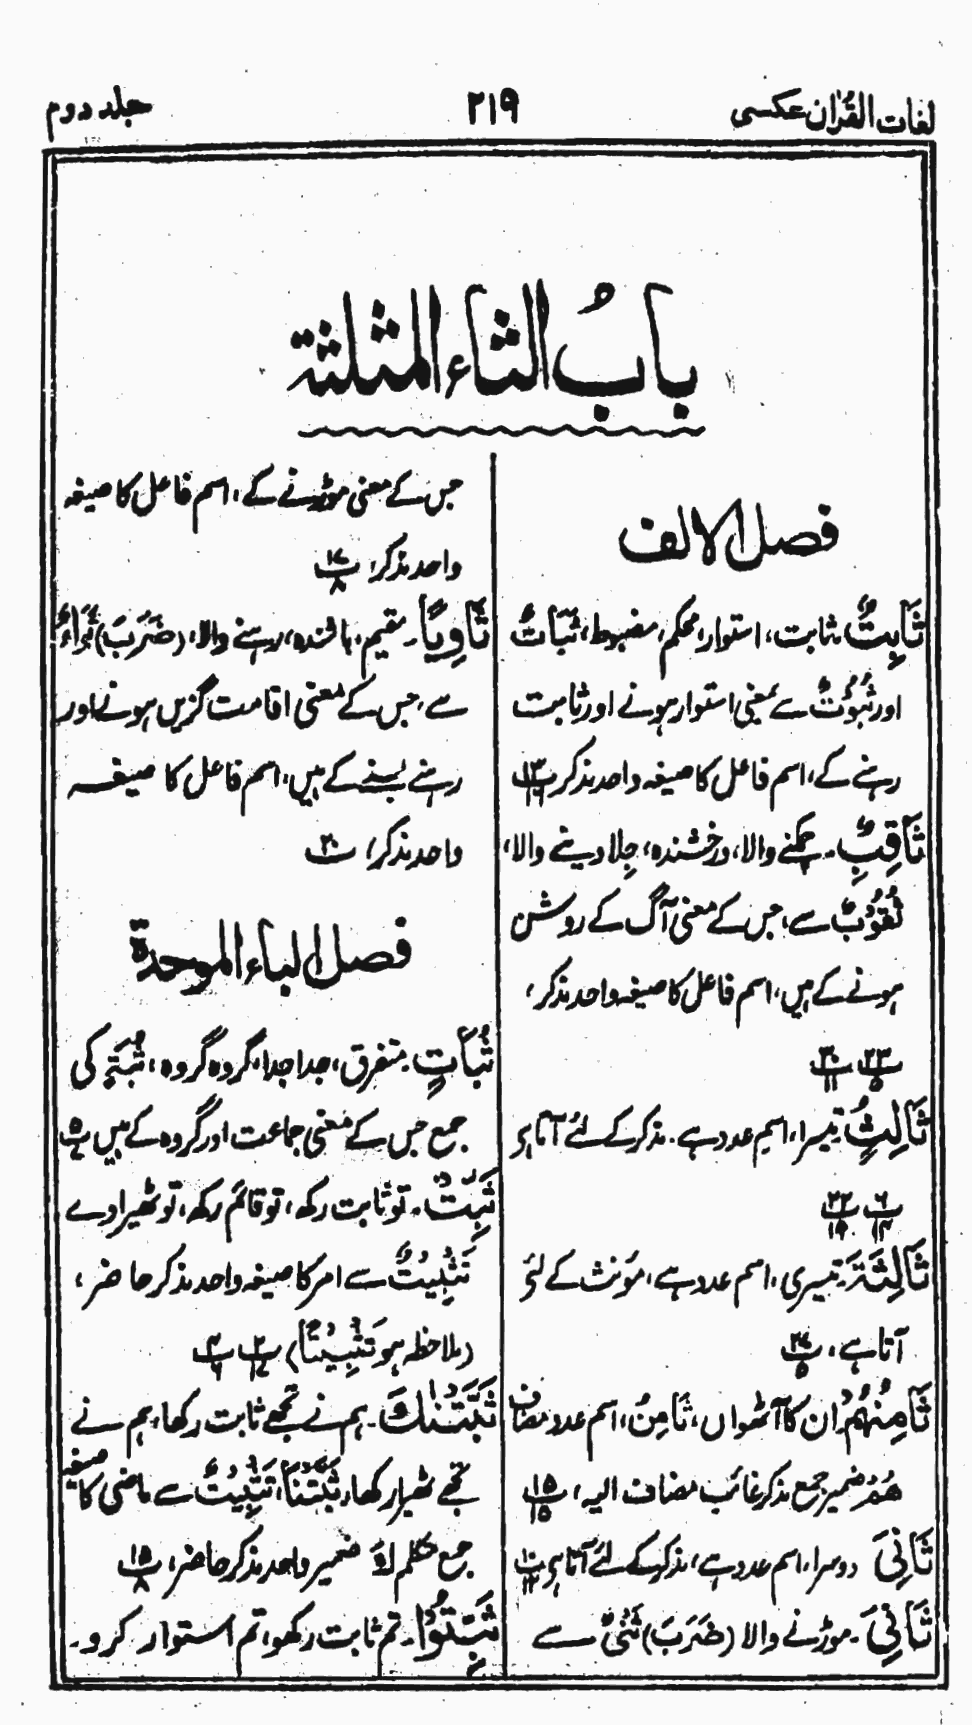 لغات القرآن عکسی
۲۱۹
جلد دوم
بابُ الثاء المثلثة
فصل الالف
ثَابِتٌ۔ ثابت، استوار، محکم، مضبوط، ثَبَاتٌ
اور ثُبُوْتٌ سے بمعنی استوار ہونے اور ثابت
رہنے کے، اسم فاعل کا صیغہ واحد مذکر
ثَاقِبٌ۔ چمکنے والا، درخشندہ، جلا دینے والا،
ثُقُوْبٌ سے، جس کے معنی آگ کے روشن
ہونے کے ہیں، اسم فاعل کا صیغہ واحد مذکر،
۲۳ ۵ ۳۰ ۱۱
ثَالِثُ تیسرا، اسم عدد ہے۔ مذکر کے لئے آتا ہے
۶ ۱۴ ۲۲ ۱۹
ثَالِثَةَ۔ تیسری، اسم عدد ہے، مؤنث کے لئے
آتا ہے، ۲۷ ۵
ثَامِنُهُمْ ان کا آٹھواں، ثَامِنُ، اسم عدد مضاف
هُمْ ضمیر جمع مذکر غائب مضاف الیہ، ۱۵ ۱۵
ثَانِیَ دوسرا، اسم عدد ہے، مذکر کے لئے آتا ہے ۱۰ ۱۲
ثَانِیَ۔ موڑنے والا (ضَرَبَ) ثَنْیٌ سے
جس کے معنی موڑنے کے، اسم فاعل کا صیغہ
واحد مذکر، ۱۷ ۸
ثَاوِيًا۔ مقیم، باشندہ، رہنے والا، (ضَرَبَ) ثَوَاءٌ
سے، جس کے معنی اقامت گزیں ہونے اور
رہنے بسنے کے ہیں، اسم فاعل کا صیغہ
واحد مذکر، ۲۰
فصل الباء الموحدة
ثُبَاتٍ۔ متفرق، جدا جدا، گروہ گروہ، ثُبَةٌ کی
جمع جس کے معنی جماعت اور گروہ کے ہیں ۵ ۷
ثَبِّتْ۔ تو ثابت رکھ، تو قائم رکھ، تو ٹھیرا دے
تَثْبِيْتٌ سے امر کا صیغہ واحد مذکر حاضر،
(ملاحظہ ہو تَثْبِيْتًا) ۲ ۱۷ ۴ ۶
ثَبَّتْنٰكَ۔ ہم نے تجھے ثابت رکھا، ہم نے
تجھے ٹھیرا رکھا، ثَبَّتْنَا، تَثْبِيْتٌ سے ماضی کا صیغہ
جمع متکلم كَ ضمیر واحد مذکر حاضر، ۱۵ ۸
ثَبِّتُوْا۔ تم ثابت رکھو، تم استوار کرو۔